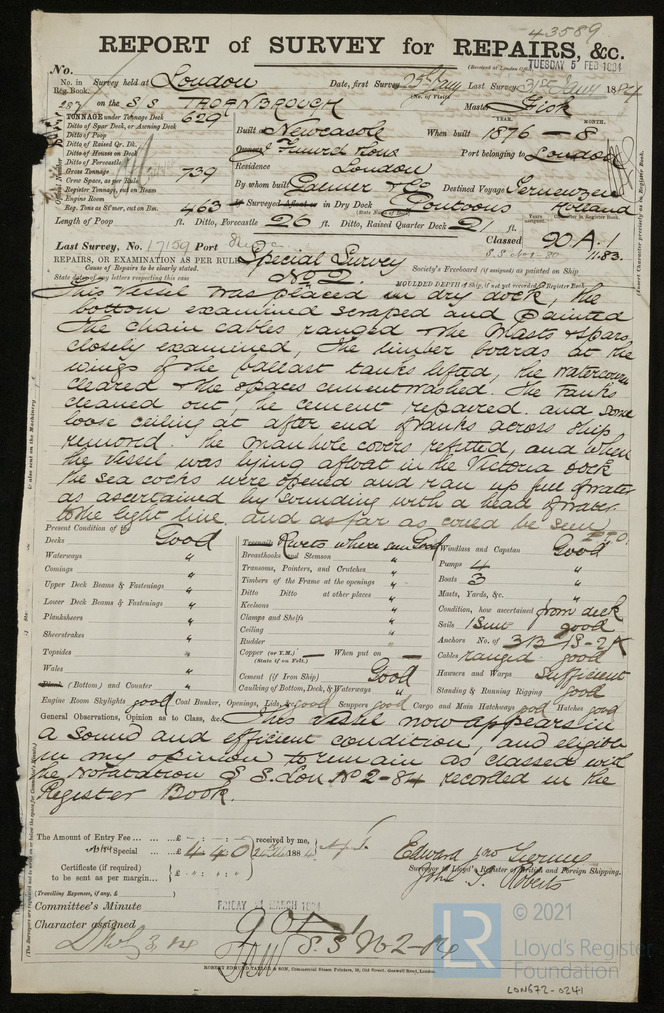 43589
REPORT of SURVEY for REPAIRS, &c.
(Received at London Office
TUESDAY 5 FEB 1884
No.
No. in Reg. Book.
Survey held at London
Date, first Survey 23rd Jany
Last Survey 31st Jany 1884
(No. of Visits)
on the S S THORNBROUGH
Master
TONNAGE under Tonnage Deck 629
YEAR. MONTH.
Ditto of Spar Deck, or Awning Deck
Built at Newcastle
When built 1876 - 8
Ditto of Poop
Ditto of Raised Qr. Dk.
Owners
Port belonging to London
Ditto of Houses on Deck
Ditto of Forecastle
Residence London
Gross Tonnage 739
Crew Space, as per Rule
By whom built Palmer & Co
Destined Voyage Terneuzen
Register Tonnage, cut on Beam
Holland
Engine Room
Surveyed Afloat or in Dry Dock Pontoons
Rep. Tons as St'mer, cut on Bm. 463
(State Name of Dock)
Years assigned
Character in Register Book.
Length of Poop ft. Ditto, Forecastle 26 ft. Ditto, Raised Quarter Deck 21 ft.
Classed 90 A.1
11.83.
Last Survey, No. 17159 Port
REPAIRS, OR EXAMINATION AS PER RULE Special Survey
Cause of Repairs to be clearly stated.
No 2.
Society's Freeboard (if assigned) as painted on Ship
State dates of any letters respecting this case
MOULDED DEPTH of Ship, if not yet recorded in Register Book.
This vessel was placed in dry dock, the
bottom examined scraped and painted
the chain cables ranged & the Masts & spars
closely examined, The limber boards at the
wings of the ballast tanks lifted, the watercourses
cleared & the spaces cementwashed. The tanks
cleaned out, the cement repaired. and some
loose ceiling at after end of tanks across ship
removed. the manhole covers refitted, and when
the vessel was lying afloat in the Victoria dock
the sea cocks were opened and ran up full of water
as ascertained by sounding with a head of water
to the light line. and as far as could be seen
P.T.O.
Present Condition of the
Decks Good
Waterways "
Comings "
Upper Deck Beams & Fastenings "
Lower Deck Beams & Fastenings "
Planksheers "
Sheerstrakes "
Topsides "
Wales "
(Bottom) and Counter "
Treenails Rivets where seen Good
Breasthooks and Stemson "
Transoms, Pointers, and Crutches "
Timbers of the Frame at the openings "
Ditto Ditto at other places "
Keelsons "
Clamps and Shelfs "
Ceiling "
Rudder "
Copper (or Y.M.) — When put on —
(State if on Felt.)
Cement (if Iron Ship) Good
Caulking of Bottom, Deck, & Waterways "
Windlass and Capstan Good
Pumps 4 "
Boats 3 "
Masts, Yards, &c. "
Condition, how ascertained from deck
Sails 1 Suit good
Anchors No. of 3B 1S - 2K
Cables ranged good
Hawsers and Warps Sufficient
Standing & Running Rigging good
Engine Room Skylights good Coal Bunker, Openings, Lids, &c good Scuppers good Cargo and Main Hatchways good Hatches good
General Observations, Opinion as to Class, &c. This vessel now appears in
a sound and efficient condition, and eligible
in my opinion to remain as classed with
the Notatation S S. Lon No 2-84 recorded in the
Register Book.
The Amount of Entry Fee ... £ : :
received by me,
Special ... £ 4 4 0
188
Certificate (if required) to be sent as per margin... £ : :
(Travelling Expenses, if any, £ )
Surveyor to Lloyd's Register of British and Foreign Shipping.
Committee's Minute
FRIDAY MARCH 1884
Character assigned 90 A 1
S.S No 2-84
ROBERT EDMUND TAYLOR & SON, Commercial Steam Printers, 19, Old Street, Goswell Road, London.
LR
© 2021
Lloyd's Register
Foundation
LON672-0241